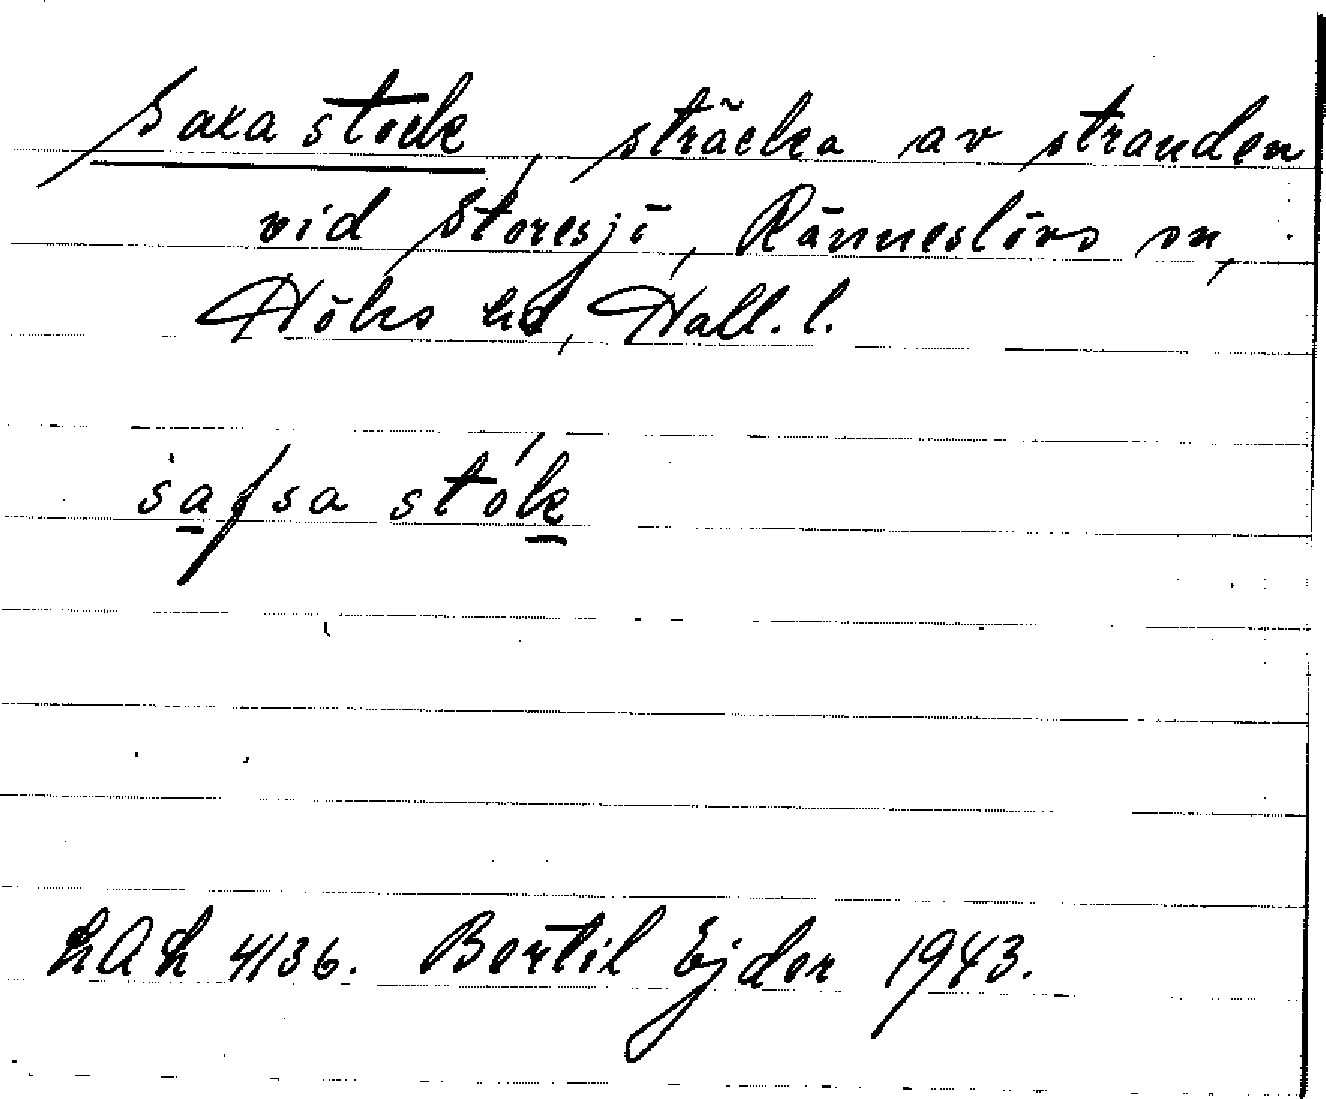 Saxa stock, sträcka av stranden
vid Storesjö, Ränneslövs sn,
Höks hd, Hall. l.
stók
LAL 4136. Bertil Ejder 1943.